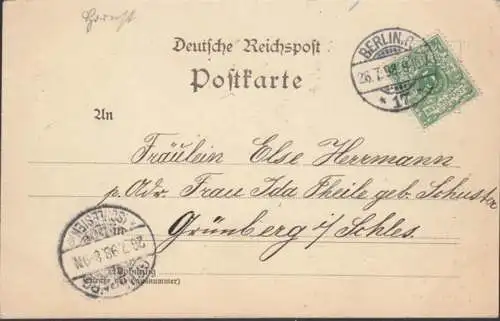 Deutsche Reichspost
Postkarte
BERLIN.C.
26.7.98.
* 17
An
Fräulein Else Herrmann
p. Adr. Frau Ida Theile geb. Schuster
Grünberg i/Schles.
(SCHLESIEN)
26.7.98.8-9N.
GRÜNBERG
Wohnung
(Straße und Hausnummer)